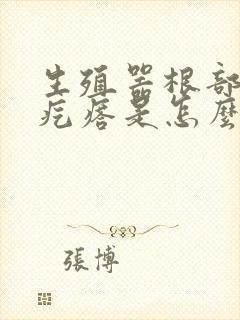 生殖器根部
疙瘩是怎麼
張博